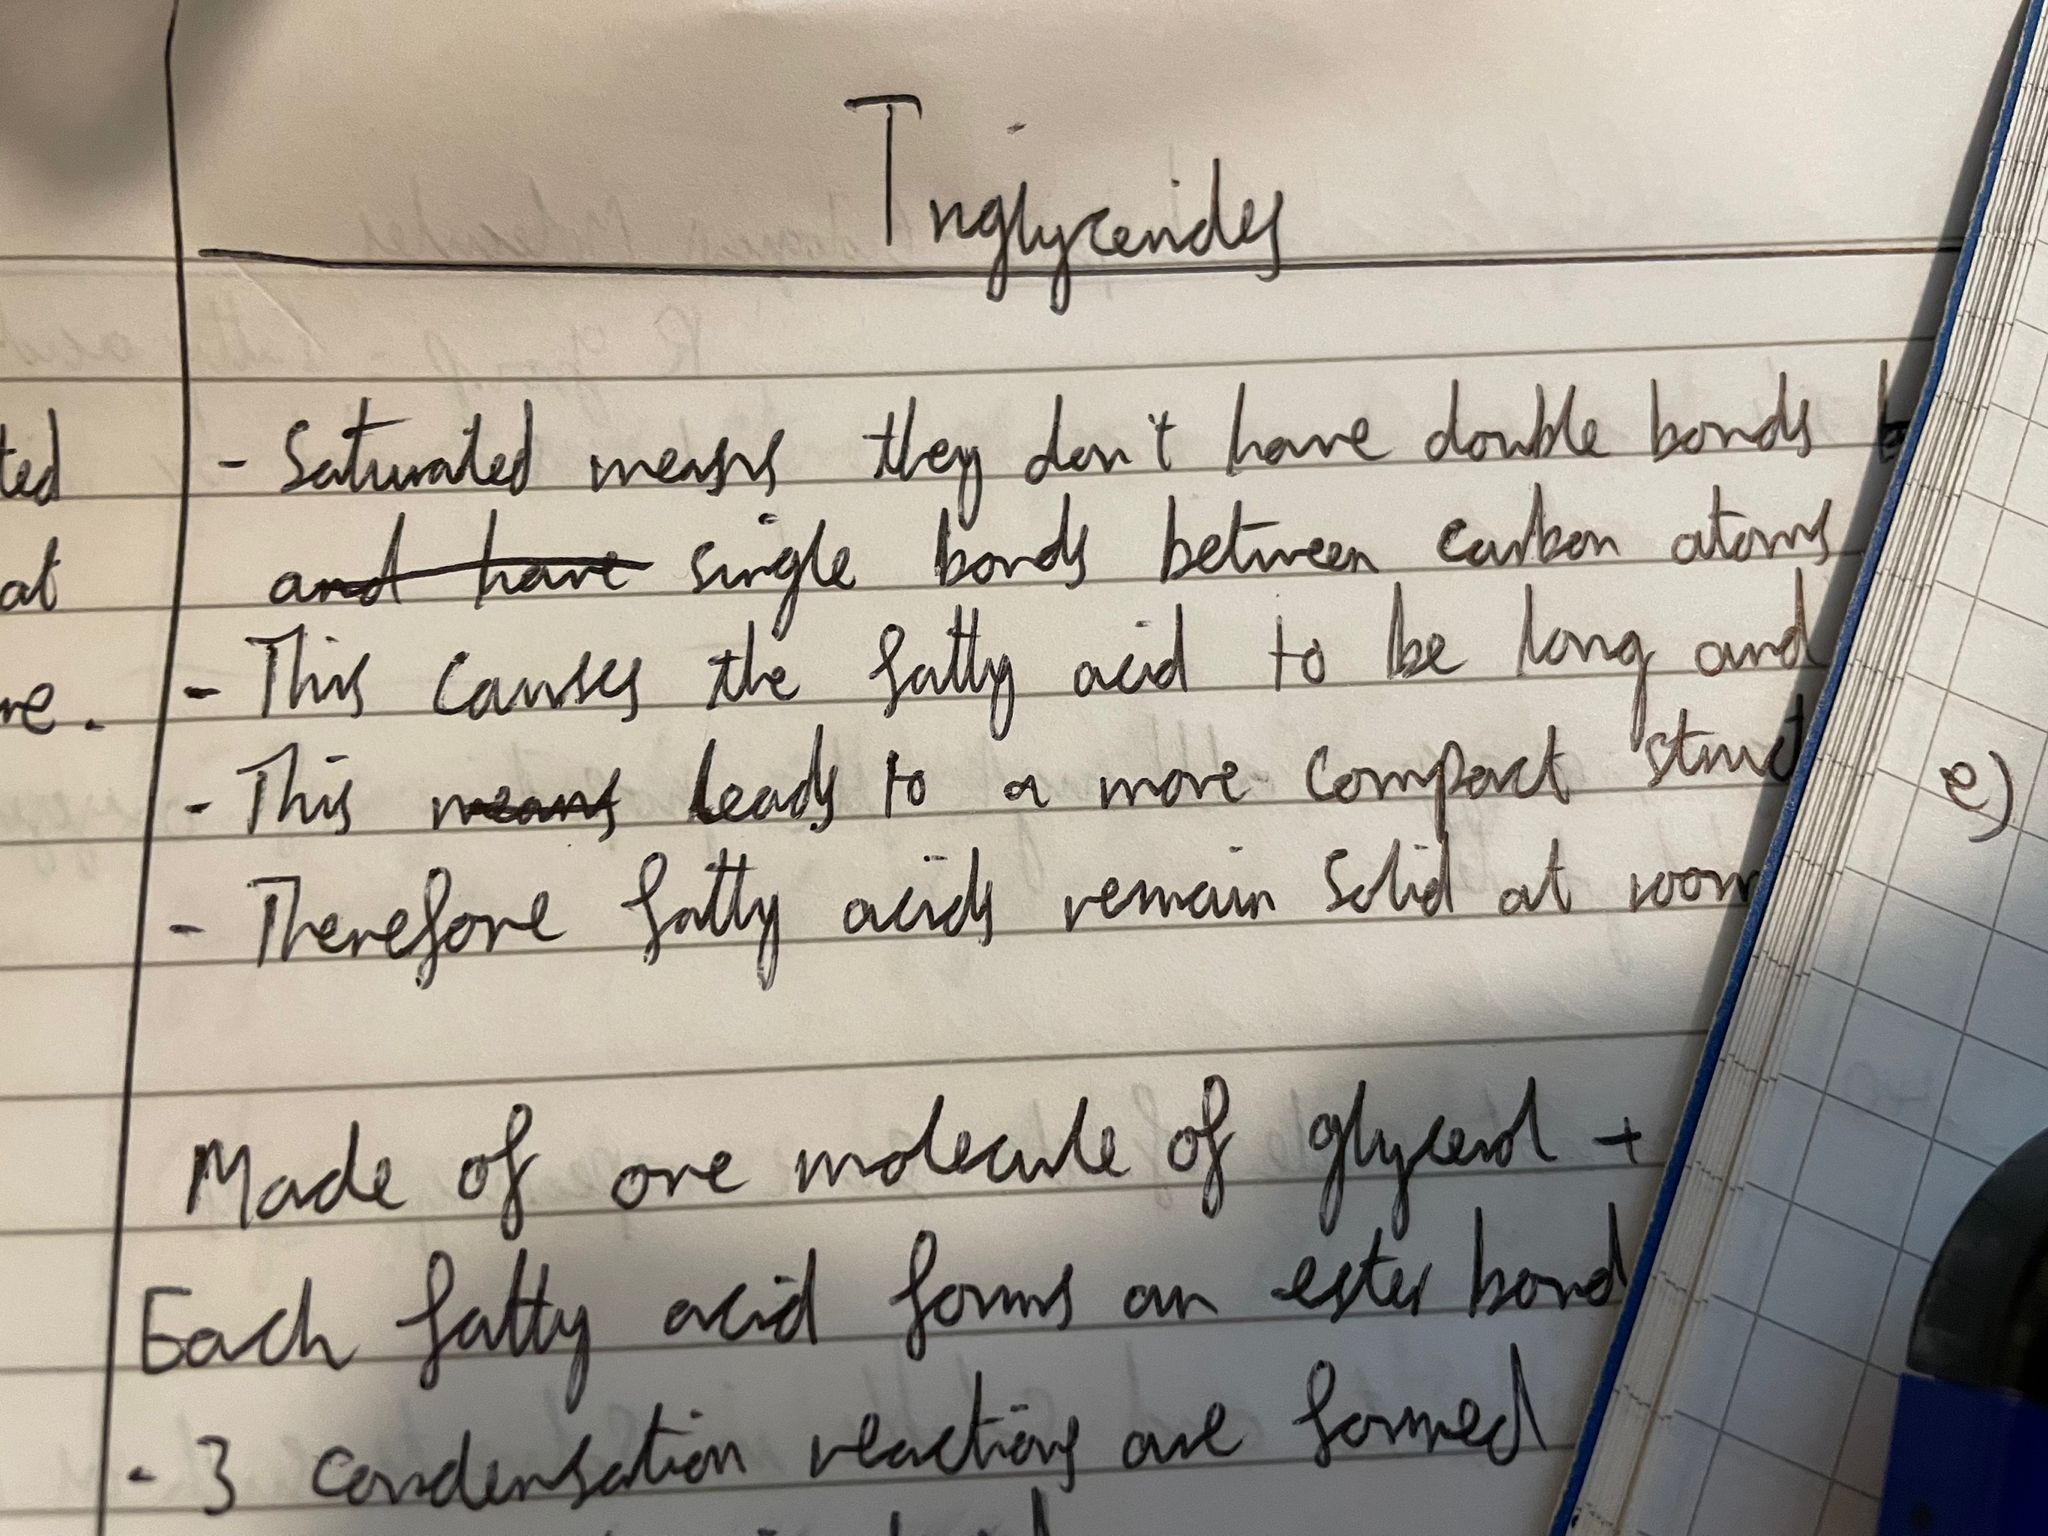 Triglycerides
ted
- Saturated means they don't have double bonds b
at
and have single bonds between carbon atoms
- This causes the fatty acid to be long and
re.
- This means leads to a more compact struct
e)
- Therefore fatty acids remain solid at room
Made of one molecule of glycerol +
Each fatty acid forms an ester bond
- 3 condensation reactions are formed